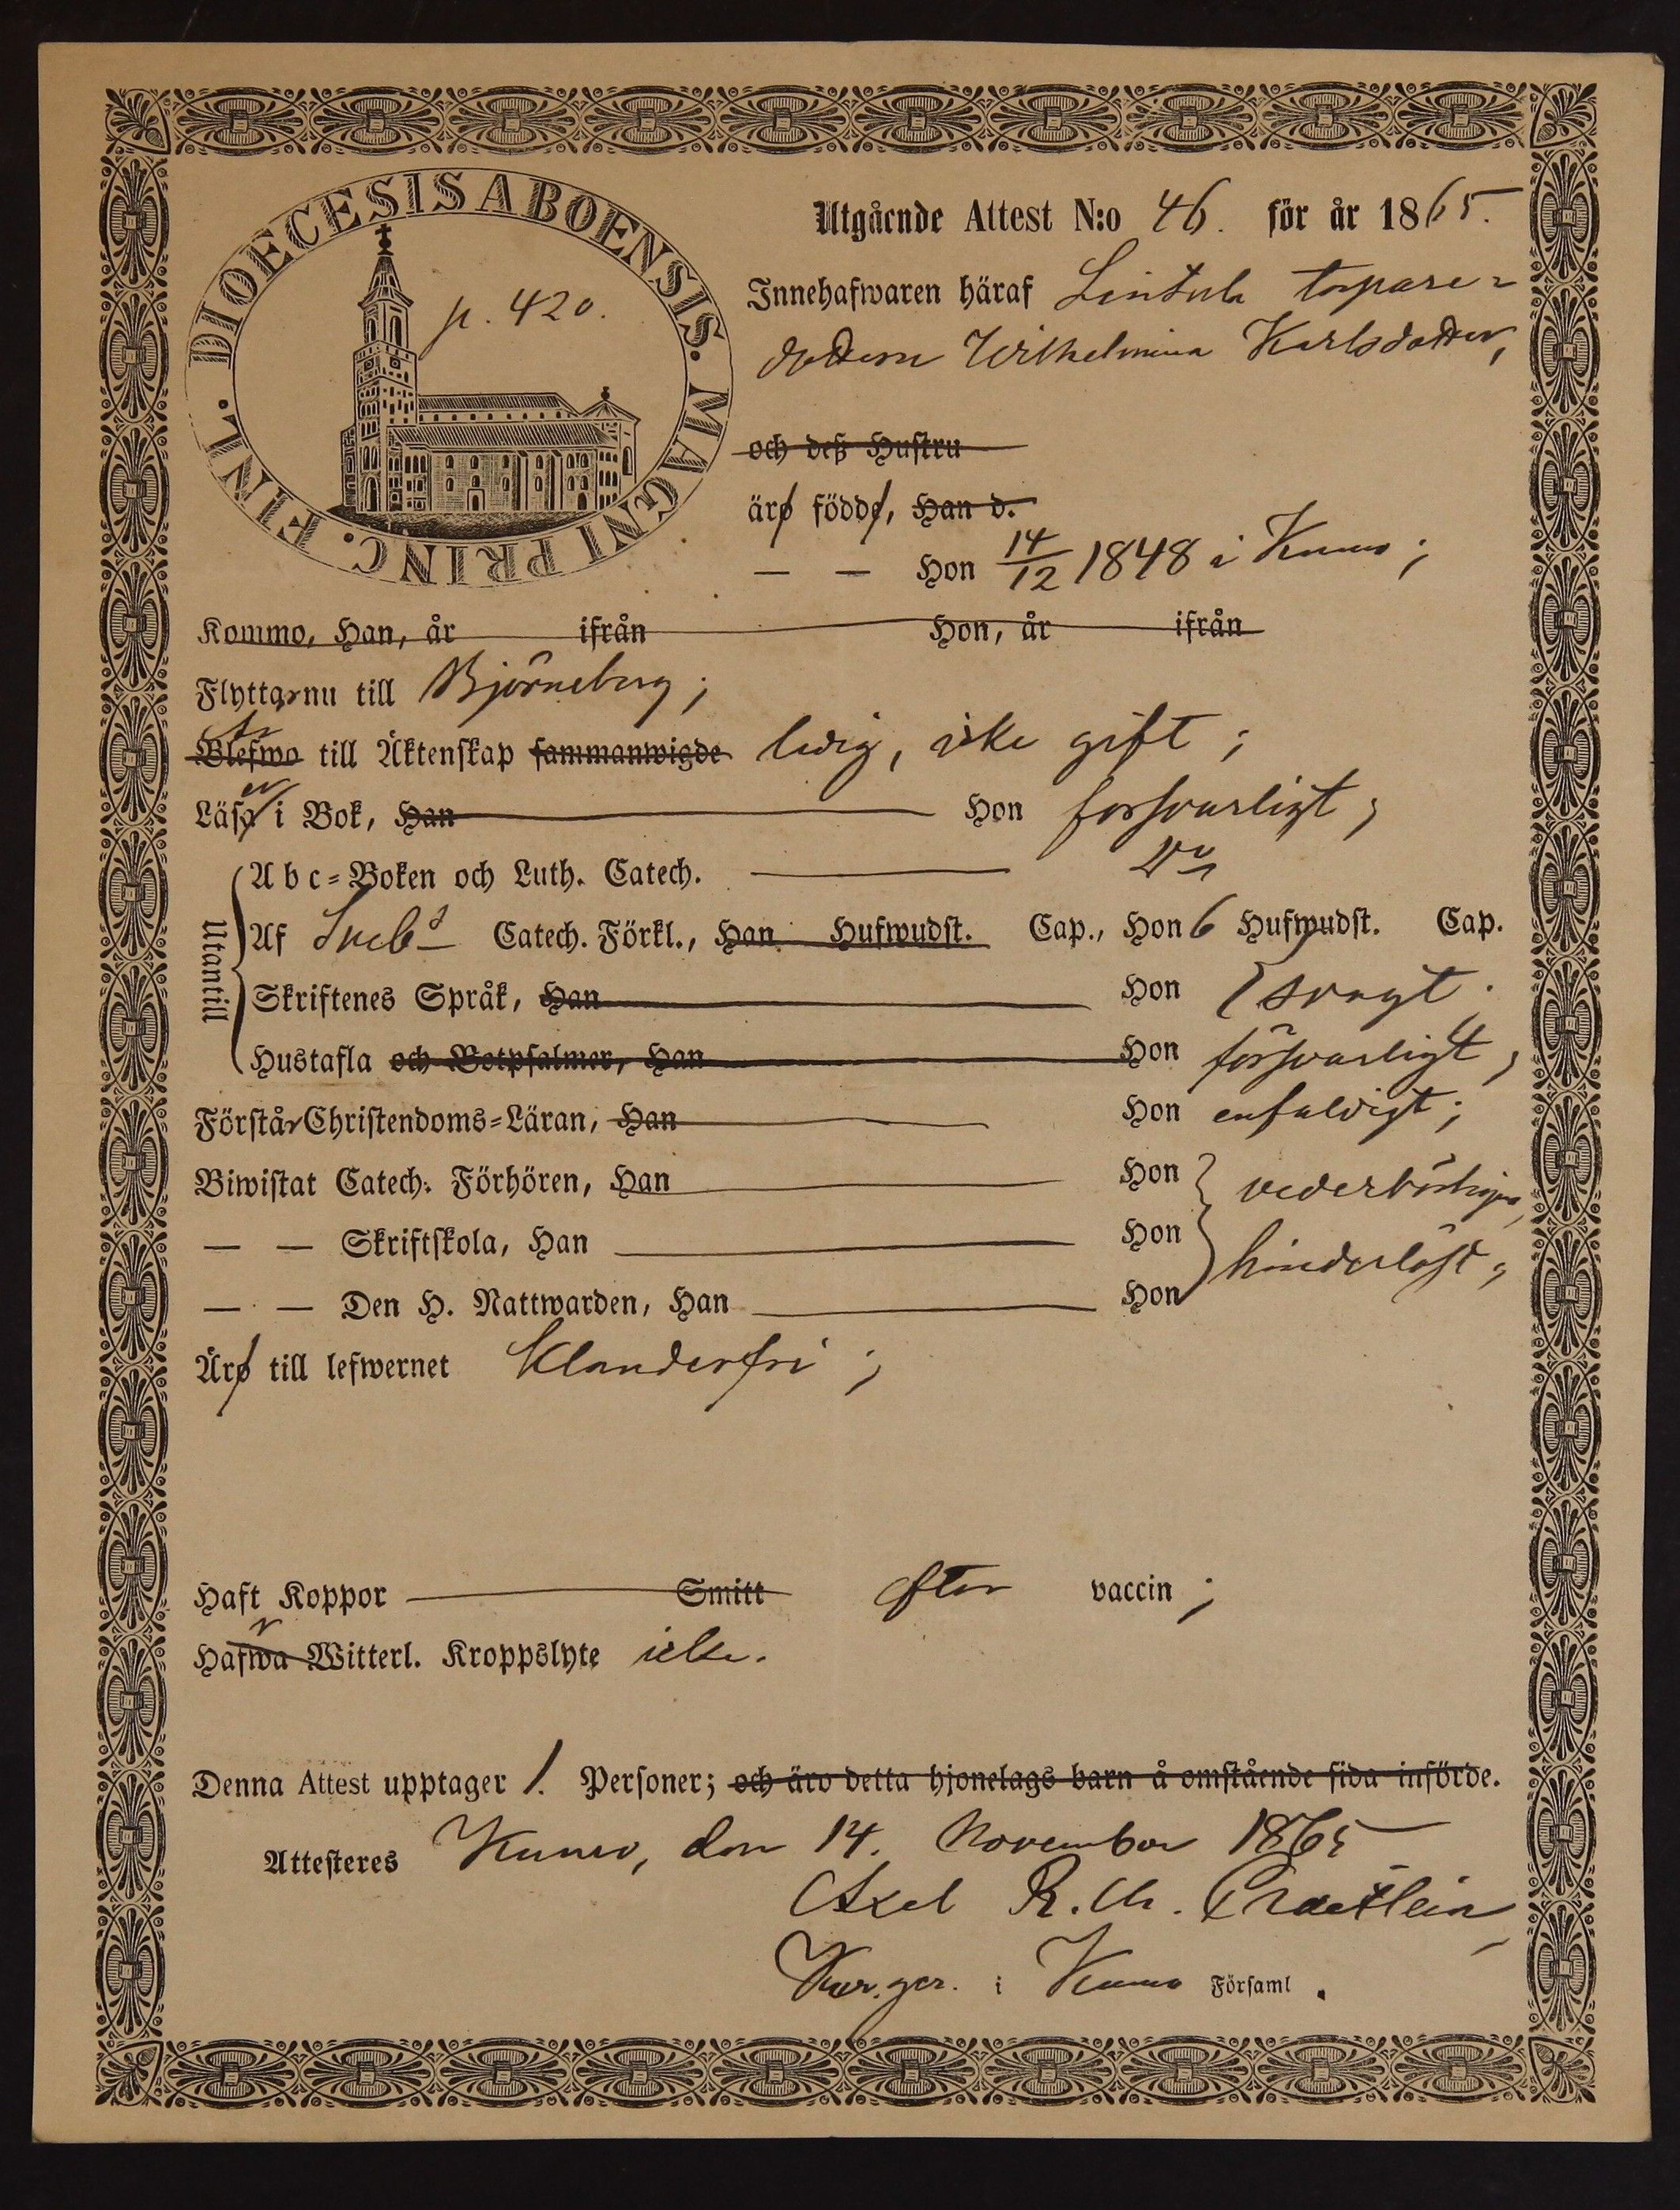 DIOECESIS ABOENSIS. MAGNI PRINC. FINL.
p. 420.
Utgående Attest N:o 46. för år 1865.
Innehafwaren häraf Lintula torpare=
dottern Wilhelmina Karlsdotter,
och deß Hustru
äro födde, Han d.
— — Hon 14/12 1848 i Kumo;
Kommo, Han, år ifrån Hon, år ifrån
Flyttar nu till Björneborg;
Är
Blefwo till Äktenskap sammanwigde ledig, icke gift;
er
Läsa i Bok, Han Hon försvarligt;
Abc=Boken och Luth. Catech. Do
Utantill
Af Sveb:s Catech. Förkl., Han Hufwudst. Cap., Hon 6 Hufwudst. Cap.
Skriftenes Språk, Han Hon svagt.
Hustafla och Botpsalmer, Han Hon försvarligt;
Förstår Christendoms=Läran, Han Hon enfaldigt;
Biwistat Catech. Förhören, Han Hon vederbörligen,
— — Skriftskola, Han Hon hinderlöst;
— — Den H. Nattwarden, Han Hon
Äro till lefwernet klanderfri;
Haft Koppor Smitt efter vaccin;
r
Hafwa Witterl. Kroppslyte icke.
Denna Attest upptager 1. Personer; och äro detta hjonelags barn å omstående sida införde.
Attesteres Kumo, den 14. November 1865
Axel R. M.
Kyr.ger. i Kumo Församl.